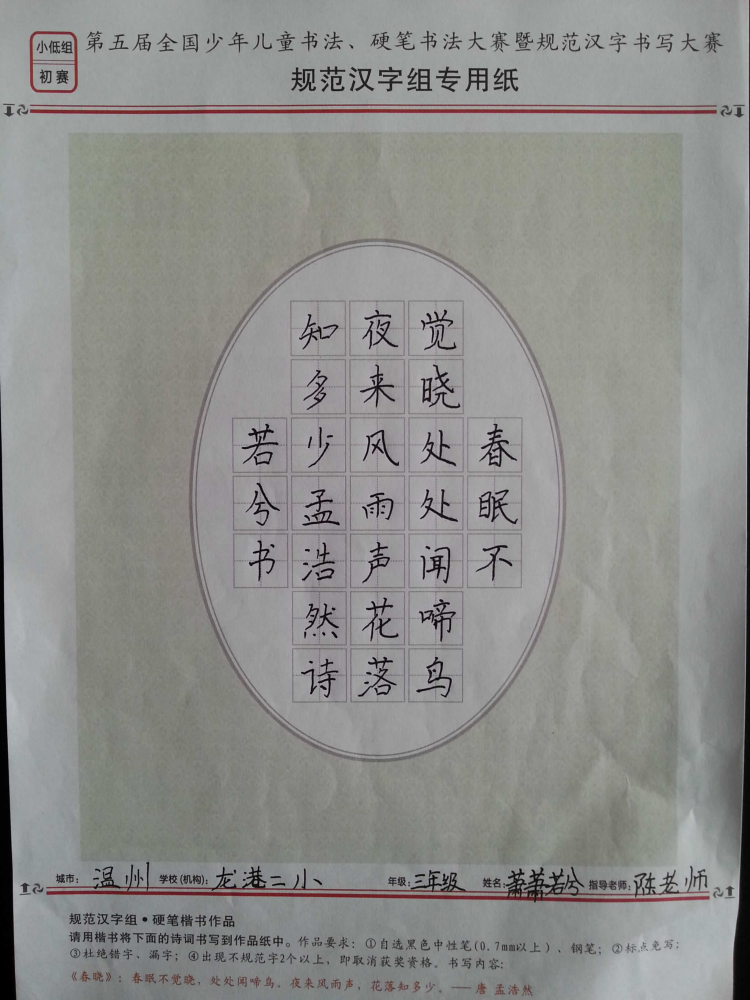 小低组
初赛
第五届全国少年儿童书法、硬笔书法大赛暨规范汉字书写大赛
规范汉字组专用纸
春眠不
觉晓处处闻啼鸟
夜来风雨声花落
知多少孟浩然诗
若兮书
城市：温州 学校(机构)：龙港二小 年级：三年级 姓名：萧萧若兮 指导老师：陈老师
规范汉字组•硬笔楷书作品
请用楷书将下面的诗词书写到作品纸中。作品要求：①自选黑色中性笔(0.7mm以上)、钢笔；②标点免写；
③杜绝错字、漏字；④出现不规范字2个以上，即取消获奖资格。书写内容：
《春晓》：春眠不觉晓，处处闻啼鸟。夜来风雨声，花落知多少。——唐 孟浩然